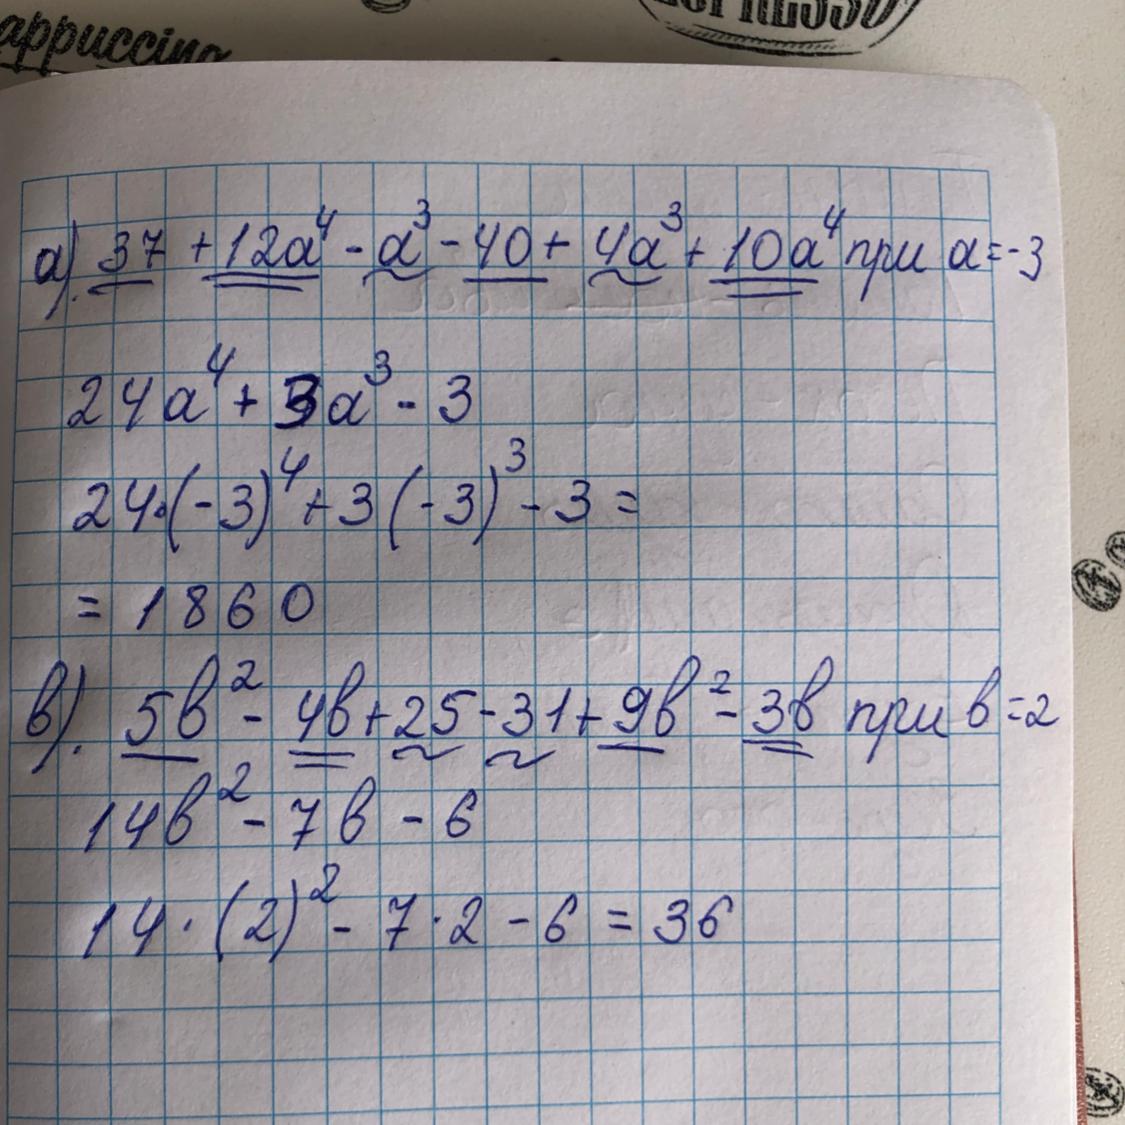 appuccino
ESPRESSO
а). 37 + 12a⁴ - a³ - 40 + 4a³ + 10a⁴ при a = -3
24a⁴ + 3a³ - 3
24·(-3)⁴ + 3(-3)³ - 3 =
= 1860
в). 5в² - 4в + 25 - 31 + 9в² - 3в при в = 2
14в² - 7в - 6
14·(2)² - 7·2 - 6 = 36